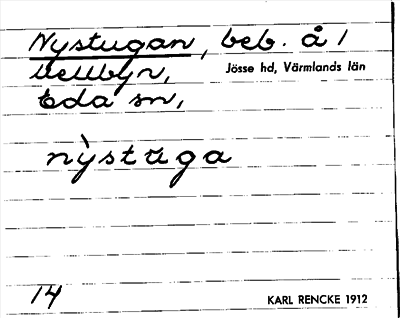 Nystugan, beb. å 1
Vellbyn, Jösse hd, Värmlands län
Eda sn,
nỳstùga
14 KARL RENCKE 1912